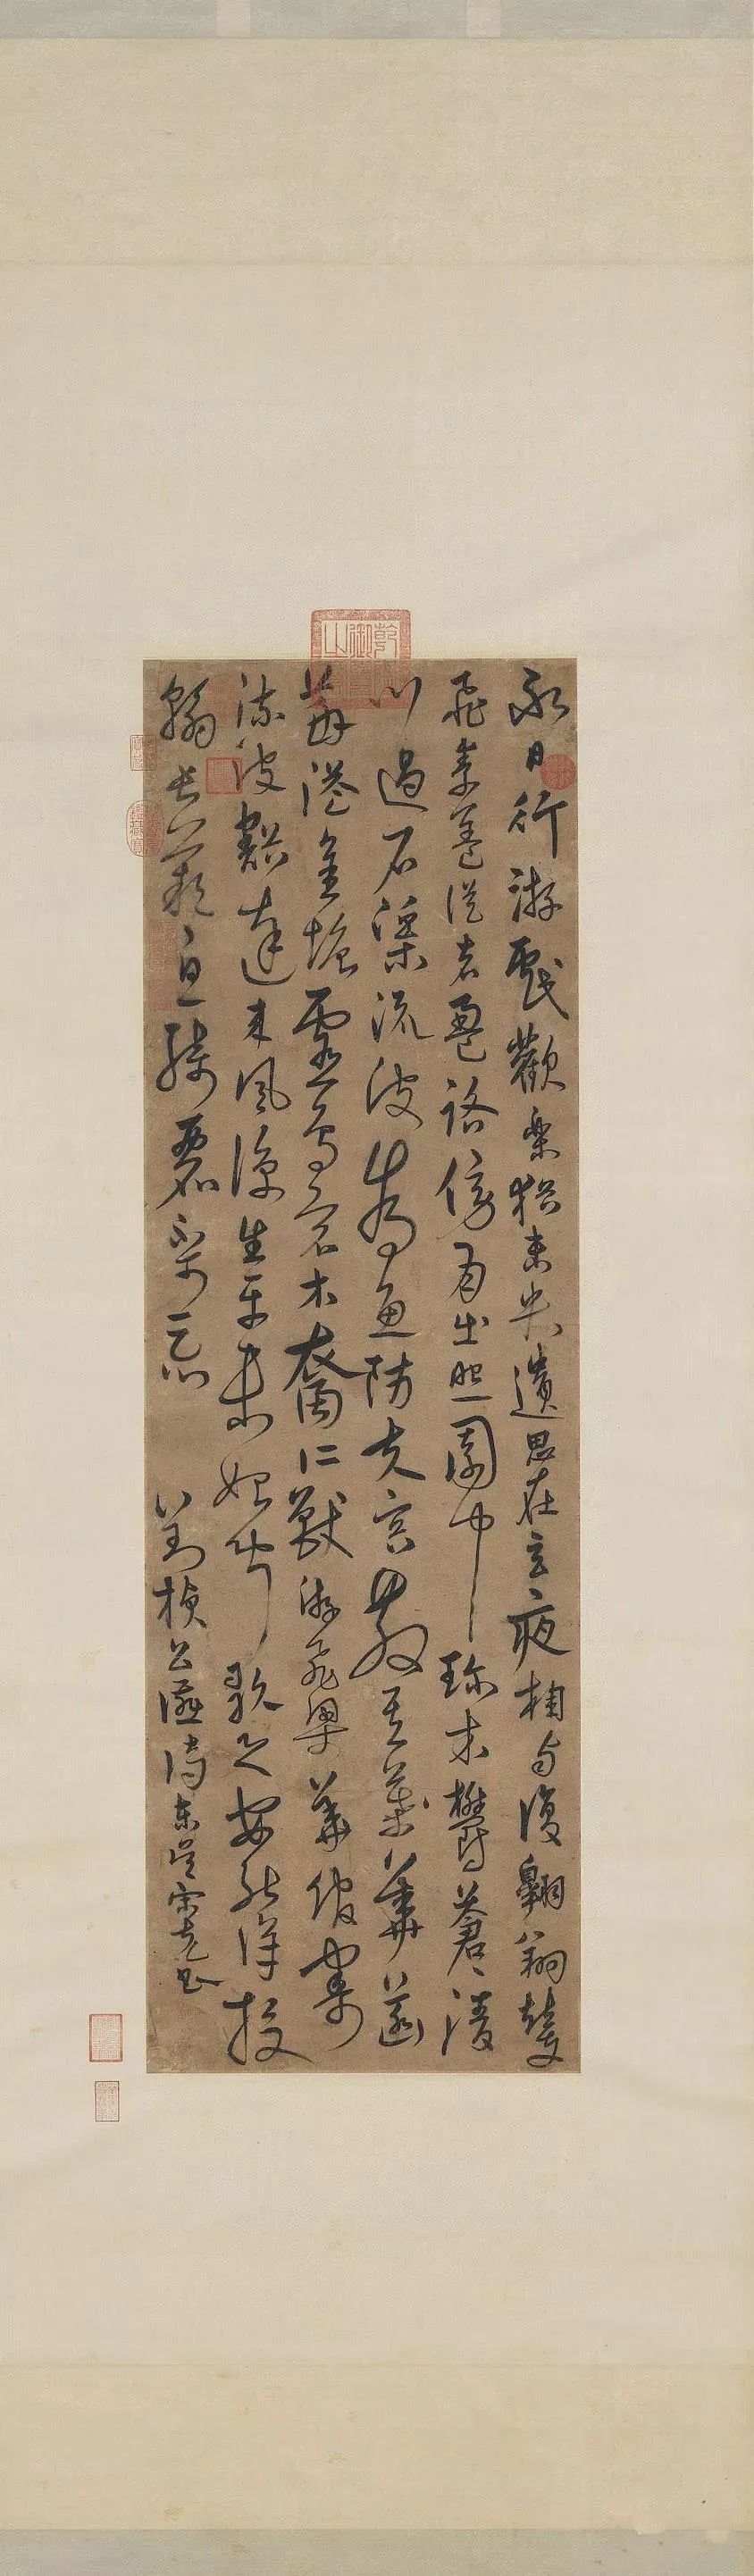 乾隆御覽之寶
永日行游戲歡樂猶未央遺思在玄夜相与復翱翔輦車
飛素蓋從者盈路傍月出照園中珍木鬱蒼〻清
川過石渠流波為魚防夫容散其華菡
萏溢金塘靈鳥宿水裔仁獸游飛梁華館寄
流波豁達來風涼生平未始聞歌之安能詳投
翰長歎息綺麗不可忘 劉楨公讌詩東吳宋克書